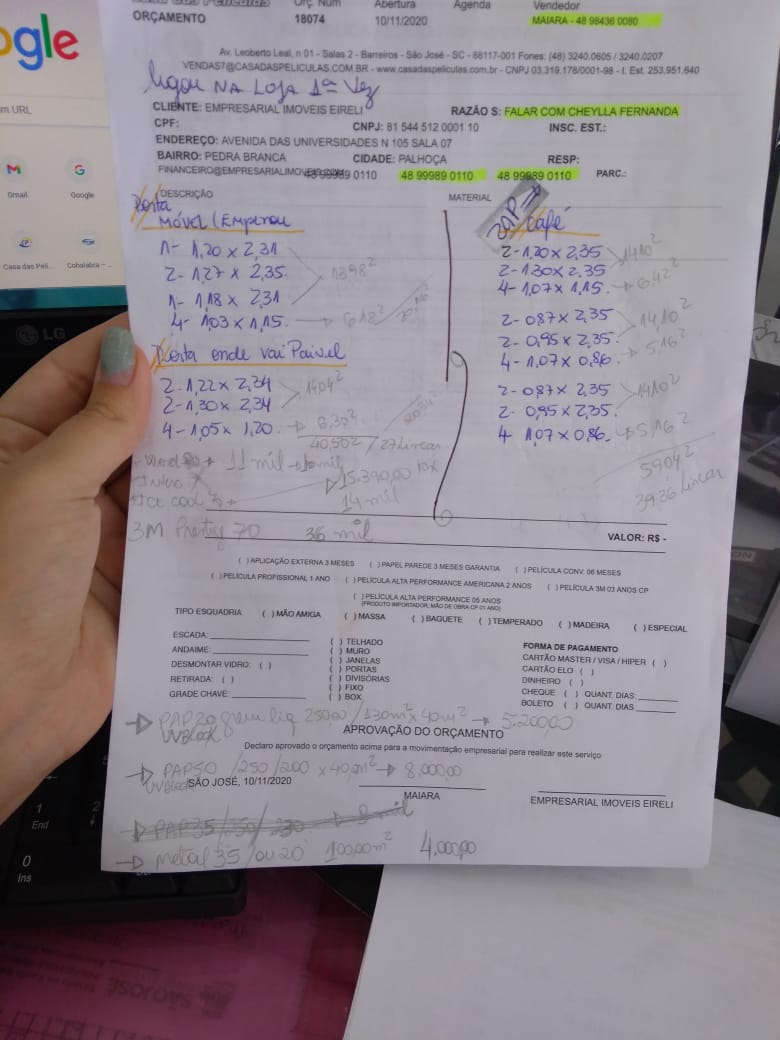 ogle
m URL
Gmail
Google
Casa das Pelí...
Cohalabra – ...
LG
Orç. Num Abertura Agenda Vendedor
ORÇAMENTO 18074 10/11/2020 MAIARA - 48 98436 0080
Av. Leoberto Leal, n 01 - Salas 2 - Barreiros - São José - SC - 88117-001 Fones: (48) 3240.0605 / 3240.0207
VENDAS7@CASADASPELICULAS.COM.BR - www.casadaspeliculas.com.br - CNPJ 03.319.178/0001-98 - I. Est. 253.951.640
ligou NA LOJA 1ª Vez
CLIENTE: EMPRESARIAL IMOVEIS EIRELI RAZÃO S: FALAR COM CHEYLLA FERNANDA
CPF: CNPJ: 81 544 512 0001 10 INSC. EST.:
ENDEREÇO: AVENIDA DAS UNIVERSIDADES N 105 SALA 07
BAIRRO: PEDRA BRANCA CIDADE: PALHOÇA RESP:
FINANCEIRO@EMPRESARIALIMOVEIS.COM 48 99989 0110 48 99989 0110 48 99989 0110 PARC.:
DESCRIÇÃO MATERIAL
Porta
MÓVEL (Empenou
1- 1,20 x 2,31
2- 1,27 x 2,35.
1- 1,18 x 2,31
1398²
4- 1,03 x 1,15. 618²
Porta onde vai Painel
2- 1,22 x 2,34
2- 1,30 x 2,34
1404²
4- 1,05 x 1,20. 6,30²
40,50² / 27 Linear
11 mil
15.390,00 10x
14 mil
3M Prestig 70 36 mil
Café
2- 1,20 x 2,35
2- 1,30 x 2,35
1410²
4- 1,07 x 1,15. 6,42²
2- 0,87 x 2,35
2- 0,95 x 2,35.
14,10²
4- 1,07 x 0,86 5,16²
2- 0,87 x 2,35
2- 0,95 x 2,35.
1410²
4- 1,07 x 0,86. 5,16²
5904²
39,36 Linear
VALOR: R$ -
( ) APLICAÇÃO EXTERNA 3 MESES ( ) PAPEL PAREDE 3 MESES GARANTIA ( ) PELÍCULA CONV. 06 MESES
( ) PELÍCULA PROFISSIONAL 1 ANO ( ) PELÍCULA ALTA PERFORMANCE AMERICANA 2 ANOS ( ) PELÍCULA 3M 03 ANOS CP
( ) PELÍCULA ALTA PERFORMANCE 05 ANOS
(PRODUTO IMPORTADOR, MÃO DE OBRA CP 01 ANO)
TIPO ESQUADRIA ( ) MÃO AMIGA ( ) MASSA ( ) BAGUETE ( ) TEMPERADO ( ) MADEIRA ( ) ESPECIAL
ESCADA:
ANDAIME:
DESMONTAR VIDRO: ( )
RETIRADA: ( )
GRADE CHAVE:
( ) TELHADO
( ) MURO
( ) JANELAS
( ) PORTAS
( ) DIVISÓRIAS
( ) FIXO
( ) BOX
FORMA DE PAGAMENTO
CARTÃO MASTER / VISA / HIPER ( )
CARTÃO ELO ( )
DINHEIRO ( )
CHEQUE ( ) QUANT. DIAS:
BOLETO ( ) QUANT. DIAS
250,00 / 130m² x 40m² → 5.200,00
UVBlock
APROVAÇÃO DO ORÇAMENTO
Declaro aprovado o orçamento acima para a movimentação empresarial para realizar este serviço
PAP50 /250/200 x 40,m² → 8,000,00
UVBlock
SÃO JOSÉ, 10/11/2020
MAIARA
EMPRESARIAL IMOVEIS EIRELI
Metal 35 /ou 20 100,00m² 4.000,00
1
End
2
0
Ins